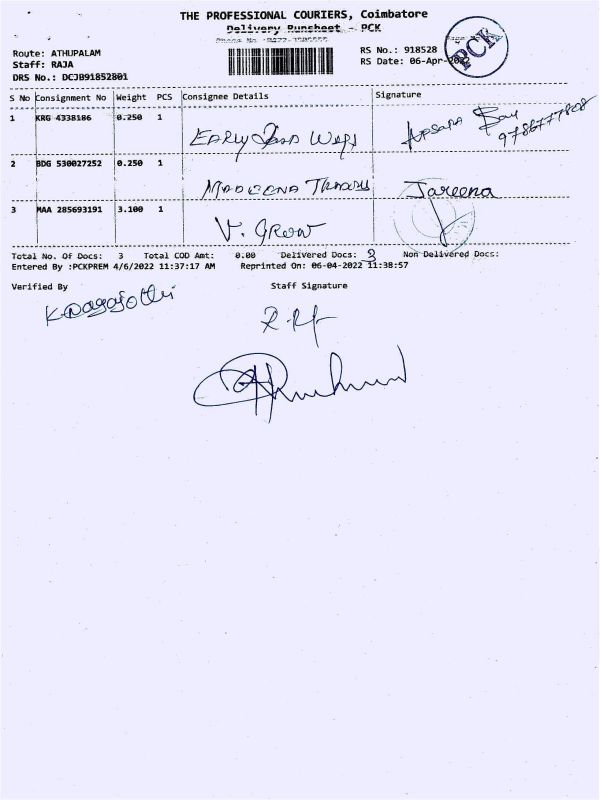 THE PROFESSIONAL COURIERS, Coimbatore
Delivery Runsheet - PCK
Route: ATHUPALAM
Staff: RAJA
DRS No.: DCJB91852801
RS No.: 918528
RS Date: 06-Apr-2022
PCK
S No Consignment No Weight PCS Consignee Details Signature
1 KRG 4338186 0.250 1
EARLY
9786777808
2 BDG 530027252 0.250 1
MADEENA TRADERS Jareena
3 MAA 285693191 3.100 1
V. GROW
Total No. Of Docs: 3 Total COD Amt: 0.00 Delivered Docs: 3 Non Delivered Docs:
Entered By :PCKPREM 4/6/2022 11:37:17 AM Reprinted On: 06-04-2022 11:38:57
Verified By Staff Signature